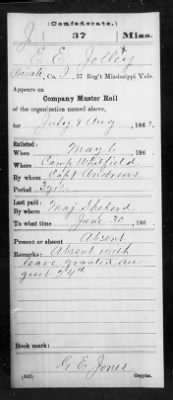 (Confederate.)
J 37 Miss.
E E Jolley
Private, Co. I, 37 Reg't Mississippi Vols.
Appears on
Company Muster Roll
of the organization named above,
for July & Aug, 186
Enlisted:
When May 6, 186
Where Camp Whitfield
By whom Capt Andrews
Period 3 yrs
Last paid:
By whom Maj
To what time June 30, 186
Present or absent Absent
Remarks: Absent with
leave granted Au
gust 24th
Book mark:
G E Jones
(642) Copyist.